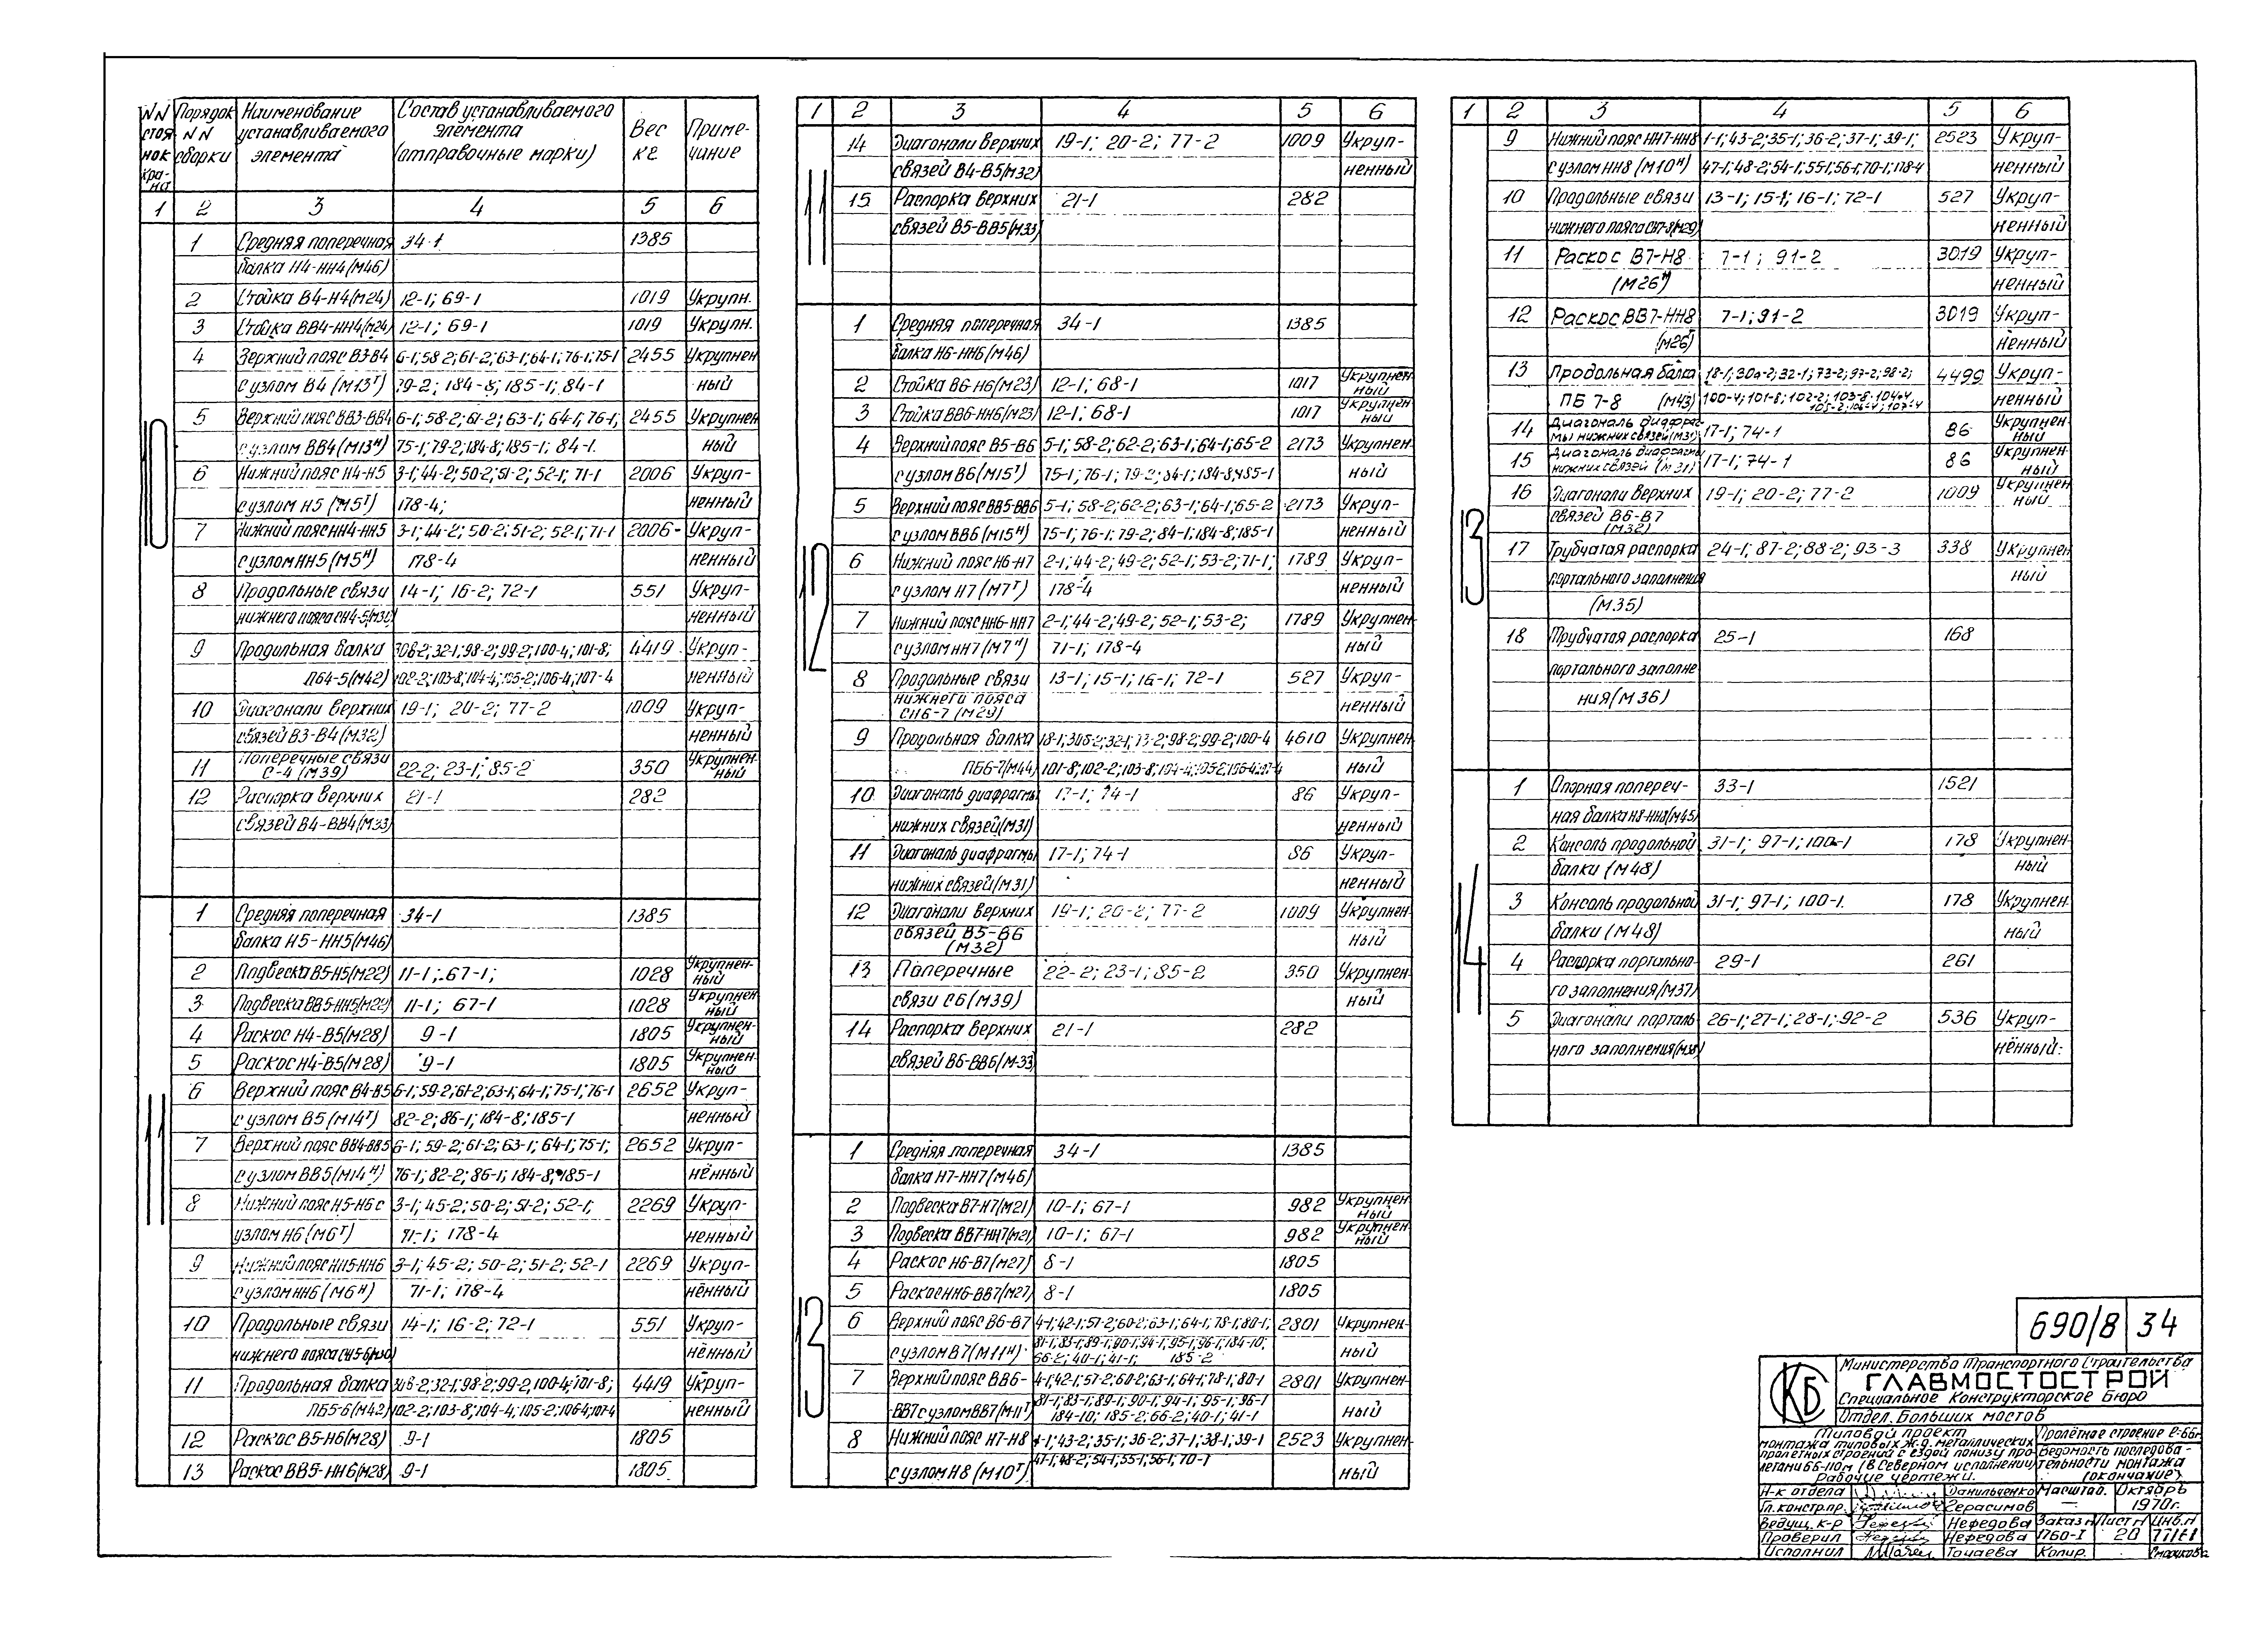 NN стоя-нок кра-на | Порядок NN сборки | Наименование устанавливаемого элемента | Состав устанавливаемого элемента (отправочные марки) | Вес кг | Приме-чание
1 2 3 4 5 6
10
1 Средняя поперечная 34-1 1385
балка Н4-НН4 (М46)
2 Стойка В4-Н4 (М24) 12-1; 69-1 1019 Укрупн.
3 Стойка ВВ4-НН4 (М24) 12-1; 69-1 1019 Укрупн.
4 Верхний пояс В3-В4 6-1; 58-2; 61-2; 63-1; 64-1; 76-1; 75-1 2455 Укрупнен
с узлом В4 (М13т) 79-2; 184-8; 185-1; 84-1 ный
5 Верхний пояс ВВ3-ВВ4 6-1; 58-2; 61-2; 63-1; 64-1; 76-1; 2455 Укрупнен
с узлом ВВ4 (М13н) 75-1; 79-2; 184-8; 185-1; 84-1. ный
6 Нижний пояс Н4-Н5 3-1; 44-2; 50-2; 51-2; 52-1; 71-1 2006 Укруп-
с узлом Н5 (М5т) 178-4; ненный
7 Нижний пояс НН4-НН5 3-1; 44-2; 50-2; 51-2; 52-1; 71-1 2006 Укруп-
с узлом НН5 (М5н) 178-4 ненный
8 Продольные связи 14-1; 16-2; 72-1 551 Укруп-
нижнего пояса СН4-5 ненный
9 Продольная балка 30в-2; 32-1; 98-2; 99-2; 100-4; 101-8; 4419 Укруп-
ПБ4-5 (М42) 102-2; 103-8; 104-4; 105-2; 106-4; 107-4 ненный
10 Диагонали верхних 19-1; 20-2; 77-2 1009 Укруп-
связей В3-В4 (М32) ненный
11 Поперечные связи С-4 (М39) 22-2; 23-1; 85-2 350 Укрупнен-ный
12 Распорка верхних 21-1 282
связей В4-ВВ4 (М33)
11
1 Средняя поперечная 34-1 1385
балка Н5-НН5 (М46)
2 Подвеска В5-Н5 (М22) 11-1; 67-1; 1028 Укрупнен-ный
3 Подвеска ВВ5-НН5 (М22) 11-1; 67-1 1028 Укрупнен ный
4 Раскос Н4-В5 (М28) 9-1 1805 Укрупнен-ный
5 Раскос Н4-В5 (М28) 9-1 1805 Укрупнен-ный
6 Верхний пояс В4-В5 6-1; 59-2; 61-2; 63-1; 64-1; 75-1; 76-1 2652 Укруп-
с узлом В5 (М14т) 82-2; 86-1; 184-8; 185-1 ненный
7 Верхний пояс ВВ4-ВВ5 6-1; 59-2; 61-2; 63-1; 64-1; 75-1; 2652 Укруп-
с узлом ВВ5 (М14н) 76-1; 82-2; 86-1; 184-8; 185-1 нённый
8 Нижний пояс Н5-Н6 с 3-1; 45-2; 50-2; 51-2; 52-1; 2269 Укруп-
узлом Н6 (М6т) 71-1; 178-4 ненный
9 Нижний пояс НН5-НН6 3-1; 45-2; 50-2; 51-2; 52-1 2269 Укруп-
с узлом НН6 (М6н) 71-1; 178-4 нённый
10 Продольные связи 14-1; 16-2; 72-1 551 Укруп-
нижнего пояса СН5-6 (М30) нённый
11 Продольная балка 30в-2; 32-1; 98-2; 99-2; 100-4; 101-8; 4419 Укруп-
ПБ5-6 (М42) 102-2; 103-8; 104-4; 105-2; 106-4; 107-4 ненный
12 Раскос В5-Н6 (М28) 9-1 1805
13 Раскос ВВ5-НН6 (М28) 9-1 1805
1 2 3 4 5 6
11
14 Диагонали верхних 19-1; 20-2; 77-2 1009 Укруп-
связей В4-В5 (М32) ненный
15 Распорка верхних 21-1 282
связей В5-ВВ5 (М33)
12
1 Средняя поперечная 34-1 1385
балка Н6-НН6 (М46)
2 Стойка В6-Н6 (М23) 12-1; 68-1 1017 Укрупнен-ный
3 Стойка ВВ6-НН6 (М23) 12-1; 68-1 1017 Укрупнен ный
4 Верхний пояс В5-В6 5-1; 58-2; 62-2; 63-1; 64-1; 65-2 2173 Укрупнен-
с узлом В6 (М15т) 75-1; 76-1; 79-2; 84-1; 184-8; 185-1 ный
5 Верхний пояс ВВ5-ВВ6 5-1; 58-2; 62-2; 63-1; 64-1; 65-2 2173 Укруп-
с узлом ВВ6 (М15н) 75-1; 76-1; 79-2; 84-1; 184-8; 185-1 ненный
6 Нижний пояс Н6-Н7 2-1; 44-2; 49-2; 52-1; 53-2; 71-1; 1789 Укруп-
с узлом Н7 (М7т) 178-4 ненный
7 Нижний пояс НН6-НН7 2-1; 44-2; 49-2; 52-1; 53-2; 1789 Укрупнен-
с узлом НН7 (М7н) 71-1; 178-4 ный
8 Продольные связи 13-1; 15-1; 16-1; 72-1 527 Укруп-
нижнего пояса СН6-7 (М29) ненный
9 Продольная балка 18-1; 30б-2; 32-1; 73-2; 98-2; 99-2; 100-4 4610 Укрупнен-
ПБ6-7 (М44) 101-8; 102-2; 103-8; 104-4; 105-2; 106-4; 107-4 ный
10 Диагональ диафрагмы 17-1; 74-1 86 Укруп-
нижних связей (М31) ненный
11 Диагональ диафрагмы 17-1; 74-1 86 Укруп-
нижних связей (М31) ненный
12 Диагонали верхних 19-1; 20-2; 77-2 1009 Укрупнен-
связей В5-В6 (М32) ный
13 Поперечные 22-2; 23-1; 85-2 350 Укрупнен-
связи С6 (М39) ный
14 Распорка верхних 21-1 282
связей В6-ВВ6 (М33)
13
1 Средняя поперечная 34-1 1385
балка Н7-НН7 (М46)
2 Подвеска В7-Н7 (М21) 10-1; 67-1 982 Укрупнен ный
3 Подвеска ВВ7-НН7 (М21) 10-1; 67-1 982 Укрупнен-ный
4 Раскос Н6-В7 (М27) 8-1 1805
5 Раскос НН6-ВВ7 (М27) 8-1 1805
6 Верхний пояс В6-В7 4-1; 42-1; 57-2; 60-2; 63-1; 64-1; 78-1; 80-1; 2801 Укрупнен-
с узлом В7 (М11н) 81-1; 83-1; 89-1; 90-1; 94-1; 95-1; 96-1; 184-10; ный
66-2; 40-1; 41-1; 185-2
7 Верхний пояс ВВ6- 4-1; 42-1; 57-2; 60-2; 63-1; 64-1; 78-1; 80-1 2801 Укрупнен-
ВВ7 с узлом ВВ7 (М-11т) 81-1; 83-1; 89-1; 90-1; 94-1; 95-1; 96-1 ный
184-10; 185-2; 66-2; 40-1; 41-1
8 Нижний пояс Н7-Н8 1-1; 43-2; 35-1; 36-2; 37-1; 38-1; 39-1 2523 Укрупнен-
с узлом Н8 (М10т) 47-1; 48-2; 54-1; 55-1; 56-1; 70-1 ный
1 2 3 4 5 6
13
9 Нижний пояс НН7-НН8 1-1; 43-2; 35-1; 36-2; 37-1; 39-1; 2523 Укруп-
с узлом НН8 (М10н) 47-1; 48-2; 54-1; 55-1; 56-1; 70-1; 178-4 ненный
10 Продольные связи 13-1; 15-1; 16-1; 72-1 527 Укруп-
нижнего пояса СН7-8 (М29) ненный
11 Раскос В7-Н8 7-1; 91-2 3019 Укруп-
(М26н) ненный
12 Раскос ВВ7-НН8 7-1; 91-2 3019 Укруп-
(М26т) ненный
13 Продольная балка 18-1; 30а-2; 32-1; 73-2; 97-2; 98-2; 4499 Укруп-
ПБ 7-8 (М43) 100-4; 101-8; 102-2; 103-8; 104-4; ненный
105-2; 106-4; 107-4
14 Диагональ диафраг-мы нижних связей (М31) 17-1; 74-1 86 Укрупнен-ный
15 Диагональ диафрагмы нижних связей (М31) 17-1; 74-1 86 Укрупнен-ный
16 Диагонали верхних 19-1; 20-2; 77-2 1009 Укрупнен ный
связей В6-В7 (М32)
17 Трубчатая распорка 24-1; 87-2; 88-2; 93-3 338 Укрупнен
портального заполнения ный
(М35)
18 Трубчатая распорка 25-1 168
портального заполне
ния (М36)
14
1 Опорная попереч- 33-1 1521
ная балка Н8-НН8 (М45)
2 Консоль продольной 31-1; 97-1; 100-1 178 Укрупнен-
балки (М48) ный
3 Консоль продольной 31-1; 97-1; 100-1. 178 Укрупнен.
балки (М48) ный
4 Распорка портально- 29-1 261
го заполнения (М37)
5 Диагонали порталь 26-1; 27-1; 28-1; 92-2 536 Укруп-
ного заполнения (М38) нённый
690/8 34
КБ
Министерство Транспортного Строительства
ГЛАВМОСТОСТРОЙ
Специальное Конструкторское Бюро
Отдел Больших мостов
Типовой проект
монтажа типовых ж.д. металлических
пролетных строений с ездой понизу про-
летами 66-110м (в Северном исполнении)
Рабочие чертежи.
Пролётное строение ℓ-66м
Ведомость последова-
тельности монтажа
(окончание)
Н-к отдела Данильченко Масштаб. Октябрь
Гл. констр. пр. Герасимов — 1970г.
Ведущ. к-р Нефедова Заказ N Лист N Инв. N
Проверил Нефедова 1760-I 20
Исполнил Точаева Копир.